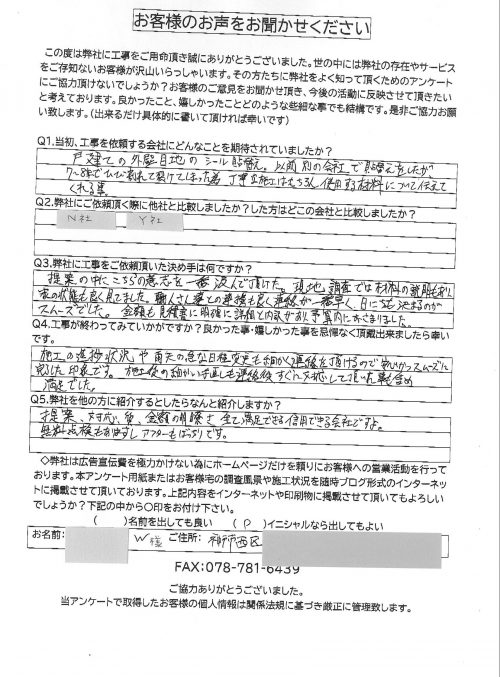 お客様のお声をお聞かせください
この度は弊社に工事をご用命頂き誠にありがとうございました。世の中には弊社の存在やサービス
をご存知ないお客様が沢山いらっしゃいます。その方たちに弊社をよく知って頂くためのアンケート
にご協力頂けないでしょうか？お客様のご意見をお聞かせ頂き、今後の活動に反映させて頂きたい
と考えております。良かったこと、嬉しかったことどのような些細な事でも結構です。是非ご協力お願
い致します。（出来るだけ具体的に書いて頂ければ幸いです）
Q1.当初、工事を依頼する会社にどんなことを期待されていましたか？
戸建ての外壁目地のシール貼替え。以前別の会社で貼替えをしたが
7～8年でひび割れて裂けてしまった為、丁寧な施工はもちろん、使用する材料について伝えて
くれる事
Q2.弊社にご依頼頂く際に他社と比較しましたか？した方はどこの会社と比較しましたか？
N社 Y社
Q3.弊社に工事をご依頼頂いた決め手は何ですか？
提案の中にこちらの意志を一番汲んで頂けた。現地調査では材料の説明もあり
家の状態も良く見てました。職人さん達との連携も良く連絡が一番早く日にちも決まるのが
スムーズでした。金額も見積書に明確に詳細と内訳があり予算内におさまりました。
Q4.工事が終わってみていかがですか？良かった事・嬉しかった事を忌憚なく頂戴出来ましたら幸い
です。
施工の進捗状況や雨天の急な日程変更も細かく連絡を頂けるので安心かつスムーズに
完了した印象です。施工後の細かい手直しも連絡後すぐに対応して頂いた事も含め
満足でした。
Q5.弊社を他の方に紹介するとしたらなんと紹介しますか？
提案、対応、質、金額の明瞭さ全て満足できる信用できる会社ですよ。
無料点検もありますしアフターもばっちりです。
◇弊社は広告宣伝費を極力かけない為にホームページだけを頼りにお客様への営業活動を行って
おります。本アンケート用紙またはお客様宅の調査風景や施工状況を随時ブログ形式のインターネッ
トに掲載させて頂いております。上記内容をインターネットや印刷物に掲載させて頂いてもよろしい
でしょうか？下記の中から○印をお付け下さい。
（ ）名前を出しても良い （ P ）イニシャルなら出してもよい
お名前： W 様 ご住所： 神戸市西区
FAX：078-781-6439
ご協力ありがとうございました。
当アンケートで取得したお客様の個人情報は関係法規に基づき厳正に管理致します。